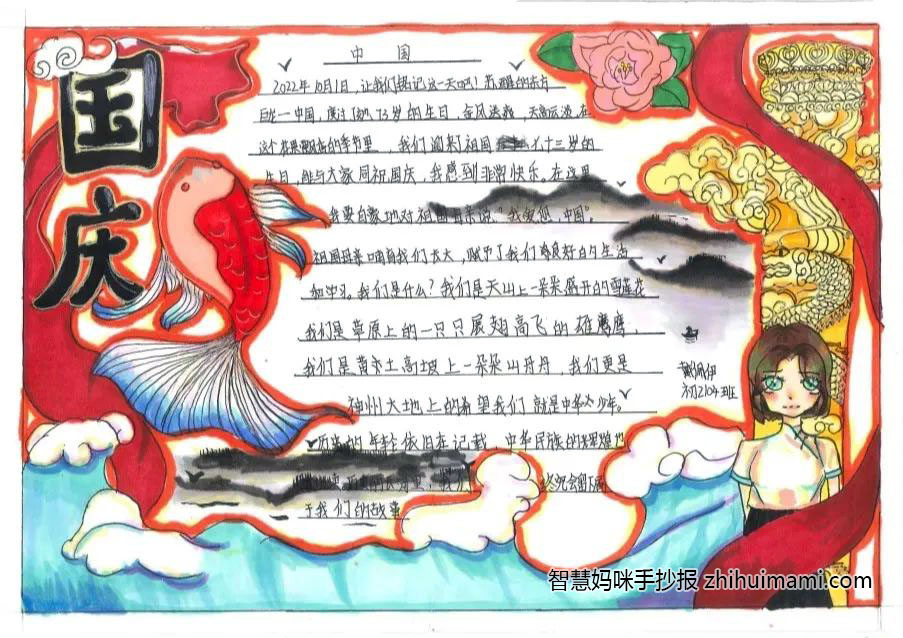 国庆
中国
2022年10月1日,让我们铭记这一天吧!苏醒的东方
巨龙一中国,度过了她73岁的生日,金风送爽,天高云淡,在
这个的季节里,我们迎来祖国七十三岁的
生日,能与大家同祝国庆,我感到非常快乐。在这里
我要自豪地对祖国母亲说“我爱您,中国”。
祖国母亲哺育我们长大,赋予了我们美好的生活
和学习。我们是什么?我们是天山上一朵朵盛开的雪莲花
我们是草原上的一只只展翅高飞的雄鹰,
我们是黄土高坡上一朵朵山丹丹,我们更是
神州大地上的希望我们就是中华少年。
历史的年轮依旧在记载,中华民族的辉煌也
我们终究会留下属
于我们的故事
初2104班
智慧妈咪手抄报 zhihuimami.com